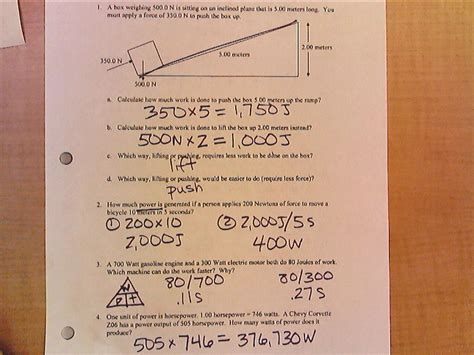 1. A box weighing 500.0 N is sitting on an inclined plane that is 5.00 meters long. You
must apply a force of 350.0 N to push the box up.
350.0 N
5.00 meters
2.00 meters
500.0 N
a. Calculate how much work is done to push the box 5.00 meters up the ramp?
350×5 = 1,750J
b. Calculate how much work is done to lift the box up 2.00 meters instead?
500N × 2 = 1,000J
c. Which way, lifting or pushing, requires less work to be done on the box?
lift
d. Which way, lifting or pushing, would be easier to do (require less force)?
push
2. How much power is generated if a person applies 200 Newtons of force to move a
bicycle 10 meters in 5 seconds?
① 200×10 ② 2,000J/5s
2,000J 400W
3. A 700 Watt gasoline engine and a 300 Watt electric motor both do 80 Joules of work.
Which machine can do the work faster? Why?
W
P T
80/700 80/300
.11s .27s
4. One unit of power is horsepower. 1.00 horsepower = 746 watts. A Chevy Corvette
Z06 has a power output of 505 horsepower. How many watts of power does it
produce?
505 × 746 = 376,730W